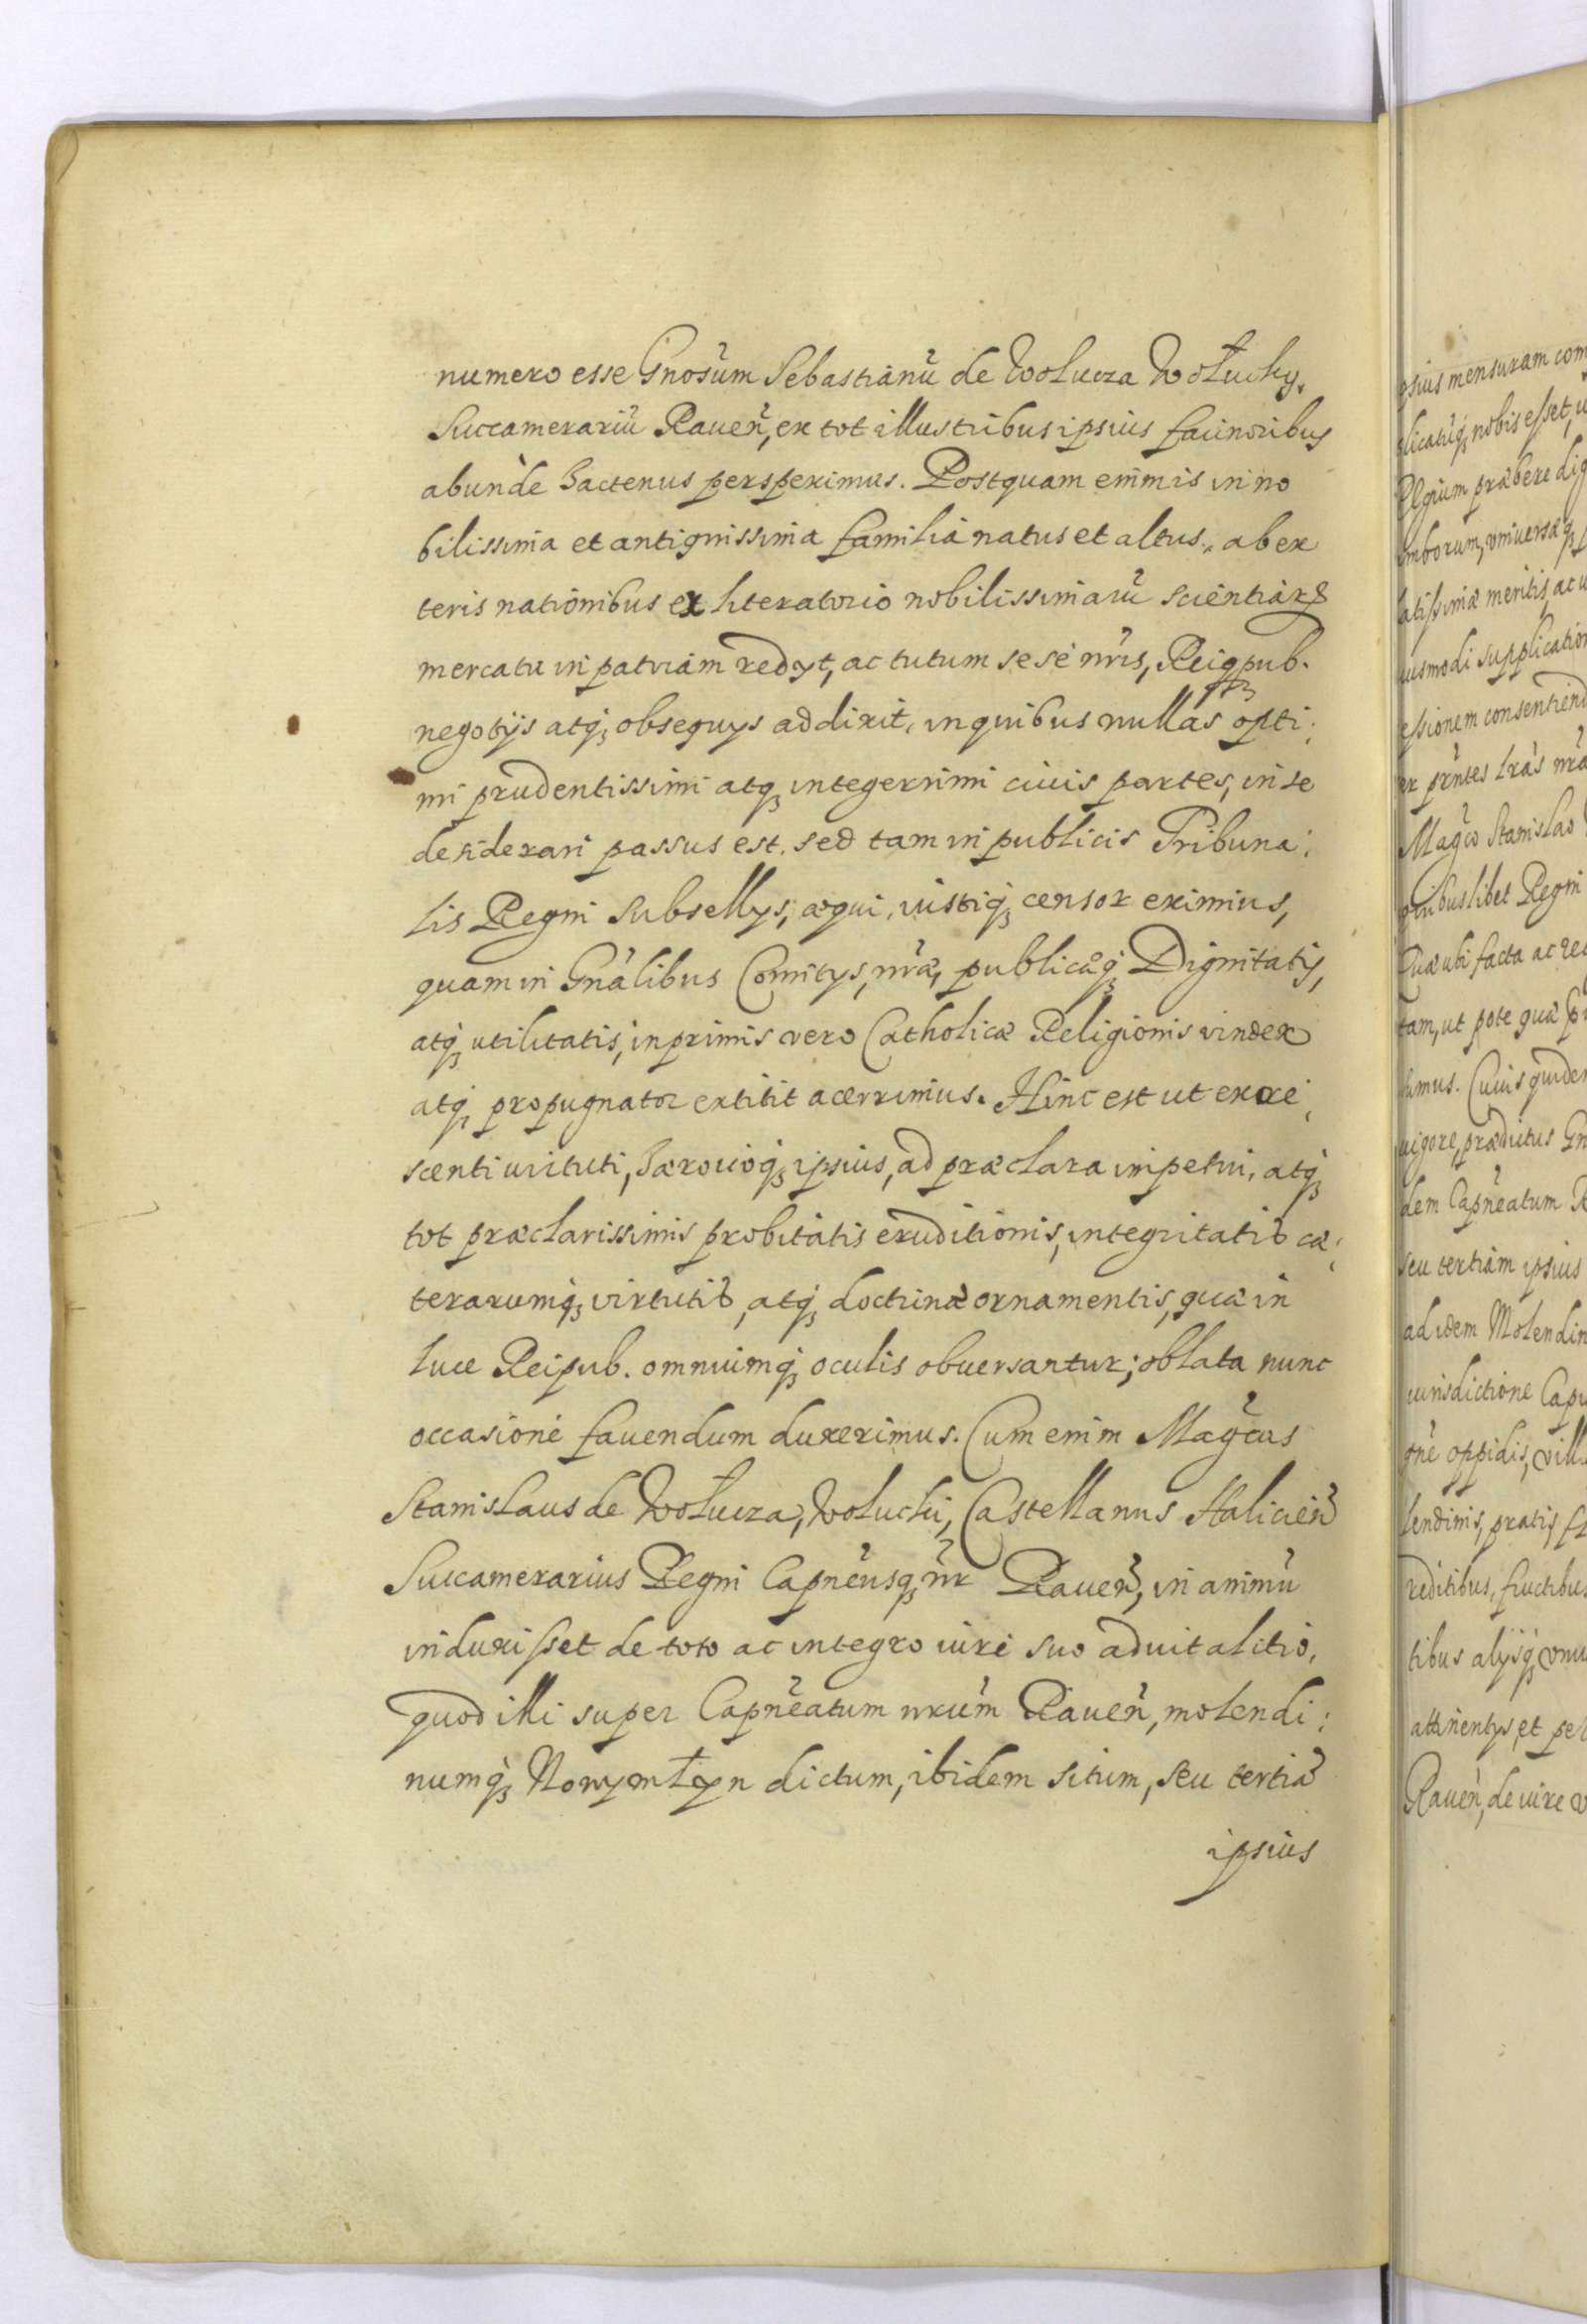 numero esse Gnosum Sebastianũ de Wolucza Wołucky,
Succamerariũ Raueñ, ex tot illustribus ipsius facinoribus
abundè hactenus perspeximus. Postquam enim is in no
bilissima et antiquissima familia natus et altus, ab ex
teris nationibus ex literatorio nobilissimarũ scientiarꝫ
mercatu in patriam redyt, ac tutum sese nr̃is, Reiqꝫ pub.
negotijs atqꝫ obsequys addixit, in quibus nullas opti:
mi prudentissimi atqꝫ integerrimi ciuis partes, in se
desiderari passus est. sed tam in publicis Tribuna:
lis Regni Subsellys, æqui, iustiqꝫ censor eximius,
quam in Gnãlibus Comitys, nr̃æ, publicæqꝫ Dignitatis,
atqꝫ utilitatis, inprimis vero Catholicæ Religionis vindex
atqꝫ propugnator extitit acerrimus. Hinc est ut excre,
scenti uirtuti, hæroicoqꝫ ipsius, ad præclara impetui, atqꝫ
tot præclarissimis probitatis eruditionis, integritatis cæ:
terarumqꝫ virtutũ, atqꝫ doctrinæ ornamentis, quæ in
luce Reipub. omniumqꝫ oculis obuersantur; oblata nunc
occasione fauendum duxerimus. Cum enim Magcus
Stanislaus de Wołucza, Wolucki, Castellanus Haliciẽn
Succamerarius Regni Capnẽusqꝫ nr̃ Raueñ, in animũ
induxisset de toto ac integro iure suo aduitalitio,
quod illi super Capnẽatum nrũm Raueñ, molendi:
numqꝫ Nowymłyn dictum, ibidem situm, seu tertiã
ipsius
osius mensuram com
licatũqꝫ nobis esset, u
Regium præbere dig
omborum, vniuersaqꝫ
latissimæ meritis, ac u
uusmodi supplication
essionem consentiend
er pr̃ntes lr̃as nr̃a
Magco Stanislao
Quæ ubi facta ac rec
tam, ut pote quæ
imus. Cuius quidem
uigore, præditus Gn
dem Capnẽatum R
seu tertiam ipsius
ad idem Molendin
iurisdictione Cap
oñe oppidis, vill
lendinis, pratis,
reditibus, fructibus
tibus alysqꝫ omn
attinentys, et per
Raueñ, de iure